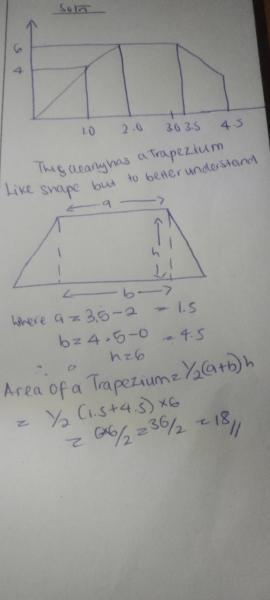 Soln
6
4
1.0 2.0 3.0 3.5 4.5
This nearly has a Trapezium
Like shape but to better understand
a
h
b
where a = 3.5 - 2 = 1.5
b = 4.5 - 0 = 4.5
h = 6
∴
Area of a Trapezium = 1/2 (a+b) h
= 1/2 (1.5 + 4.5) × 6
= 6×6/2 = 36/2 = 18 //